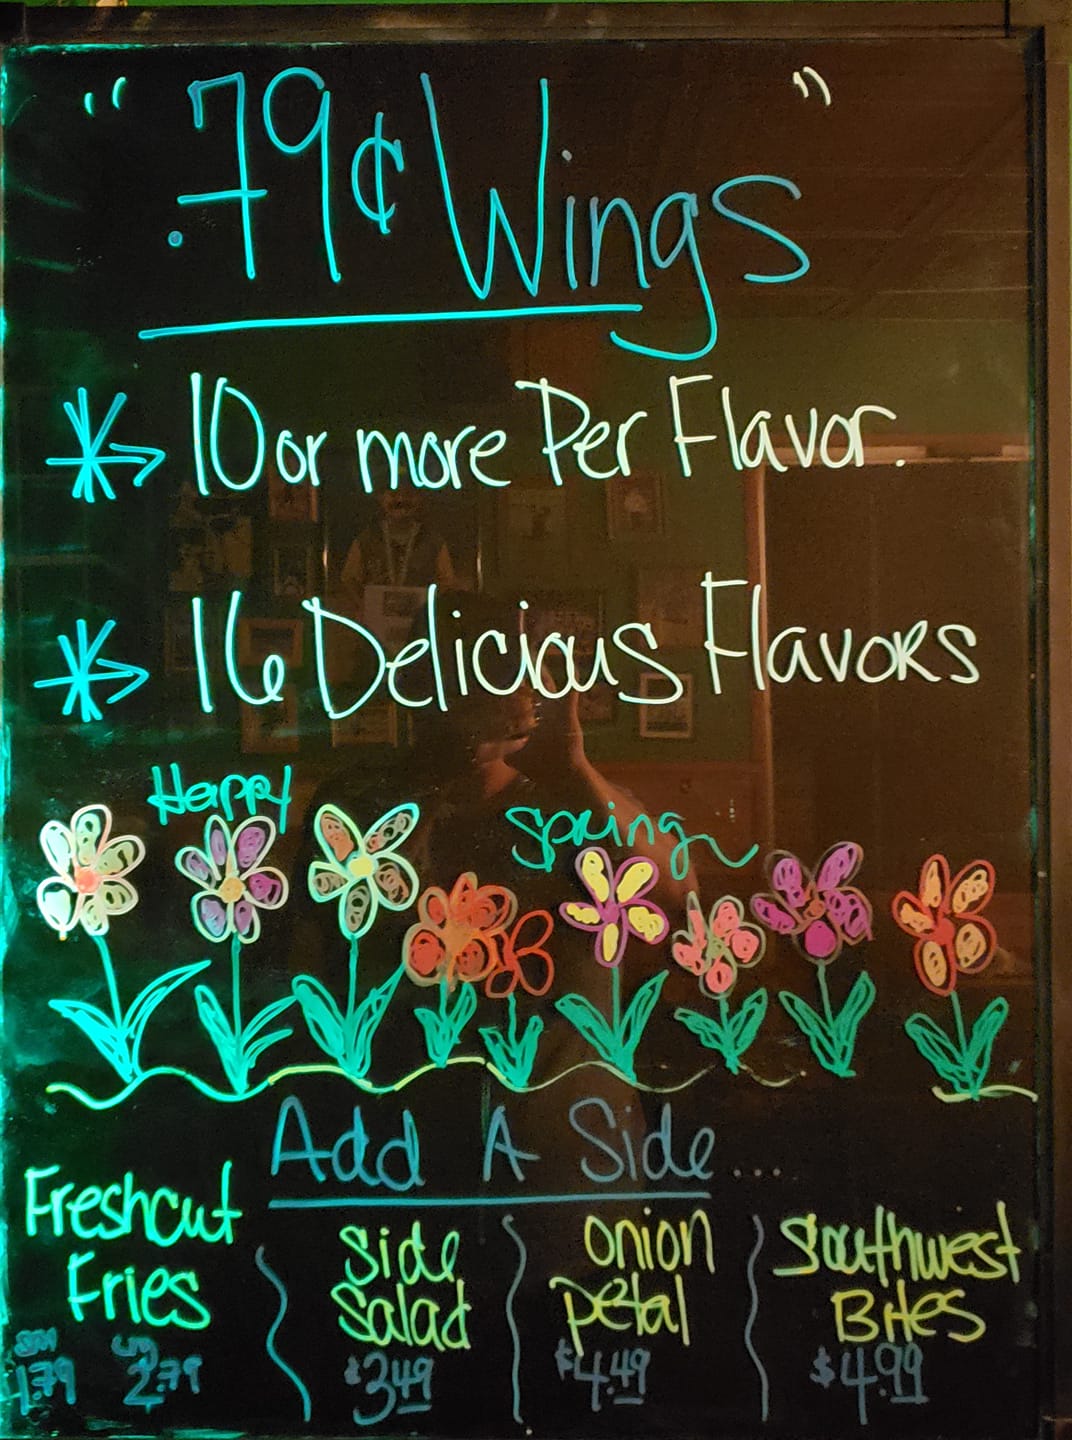 " .79¢ Wings "
10 or more Per Flavor.
16 Delicious Flavors
Happy Spring
Add A Side...
Freshcut Fries
sm 1.79
LG 2.79
Side Salad
$3.49
Onion Petal
$4.49
Southwest Bites
$4.99